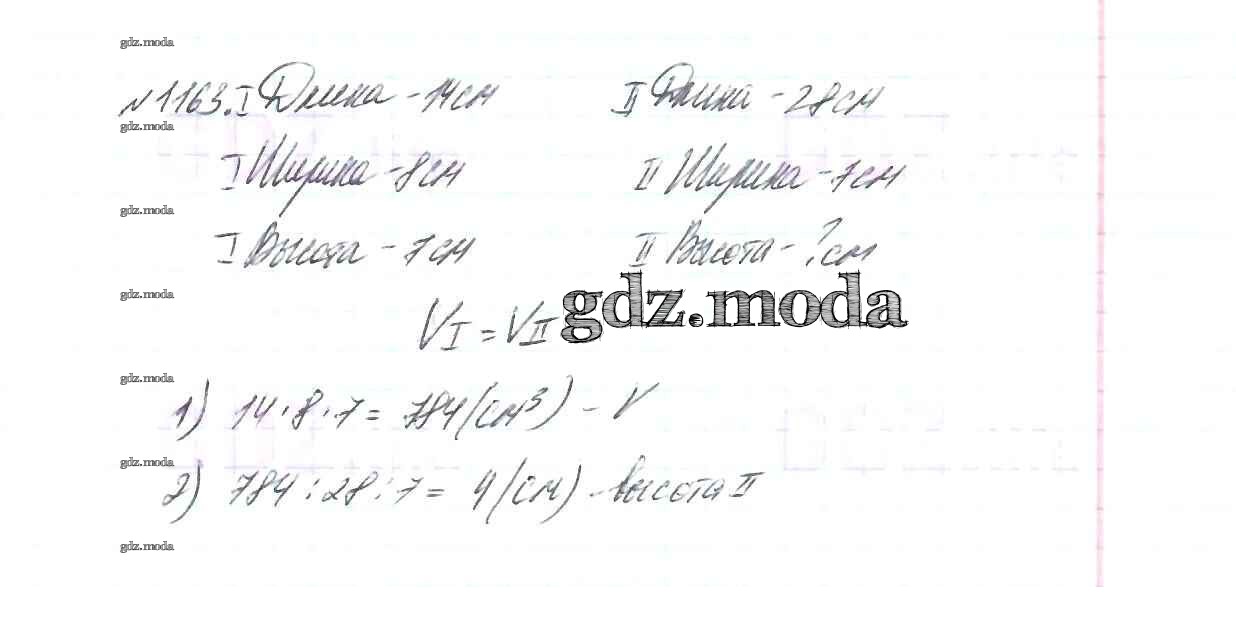 gdz.moda
№1163. I Длина - 14см II Длина - 28см
gdz.moda
I Ширина - 8см II Ширина - 7см
gdz.moda
I Высота - 7см II Высота - ?см
gdz.moda
gdz.moda
V I = V II
gdz.moda
1) 14·8·7= 784(см³) - V
gdz.moda
2) 784:28:7= 4(см) - высота II
gdz.moda